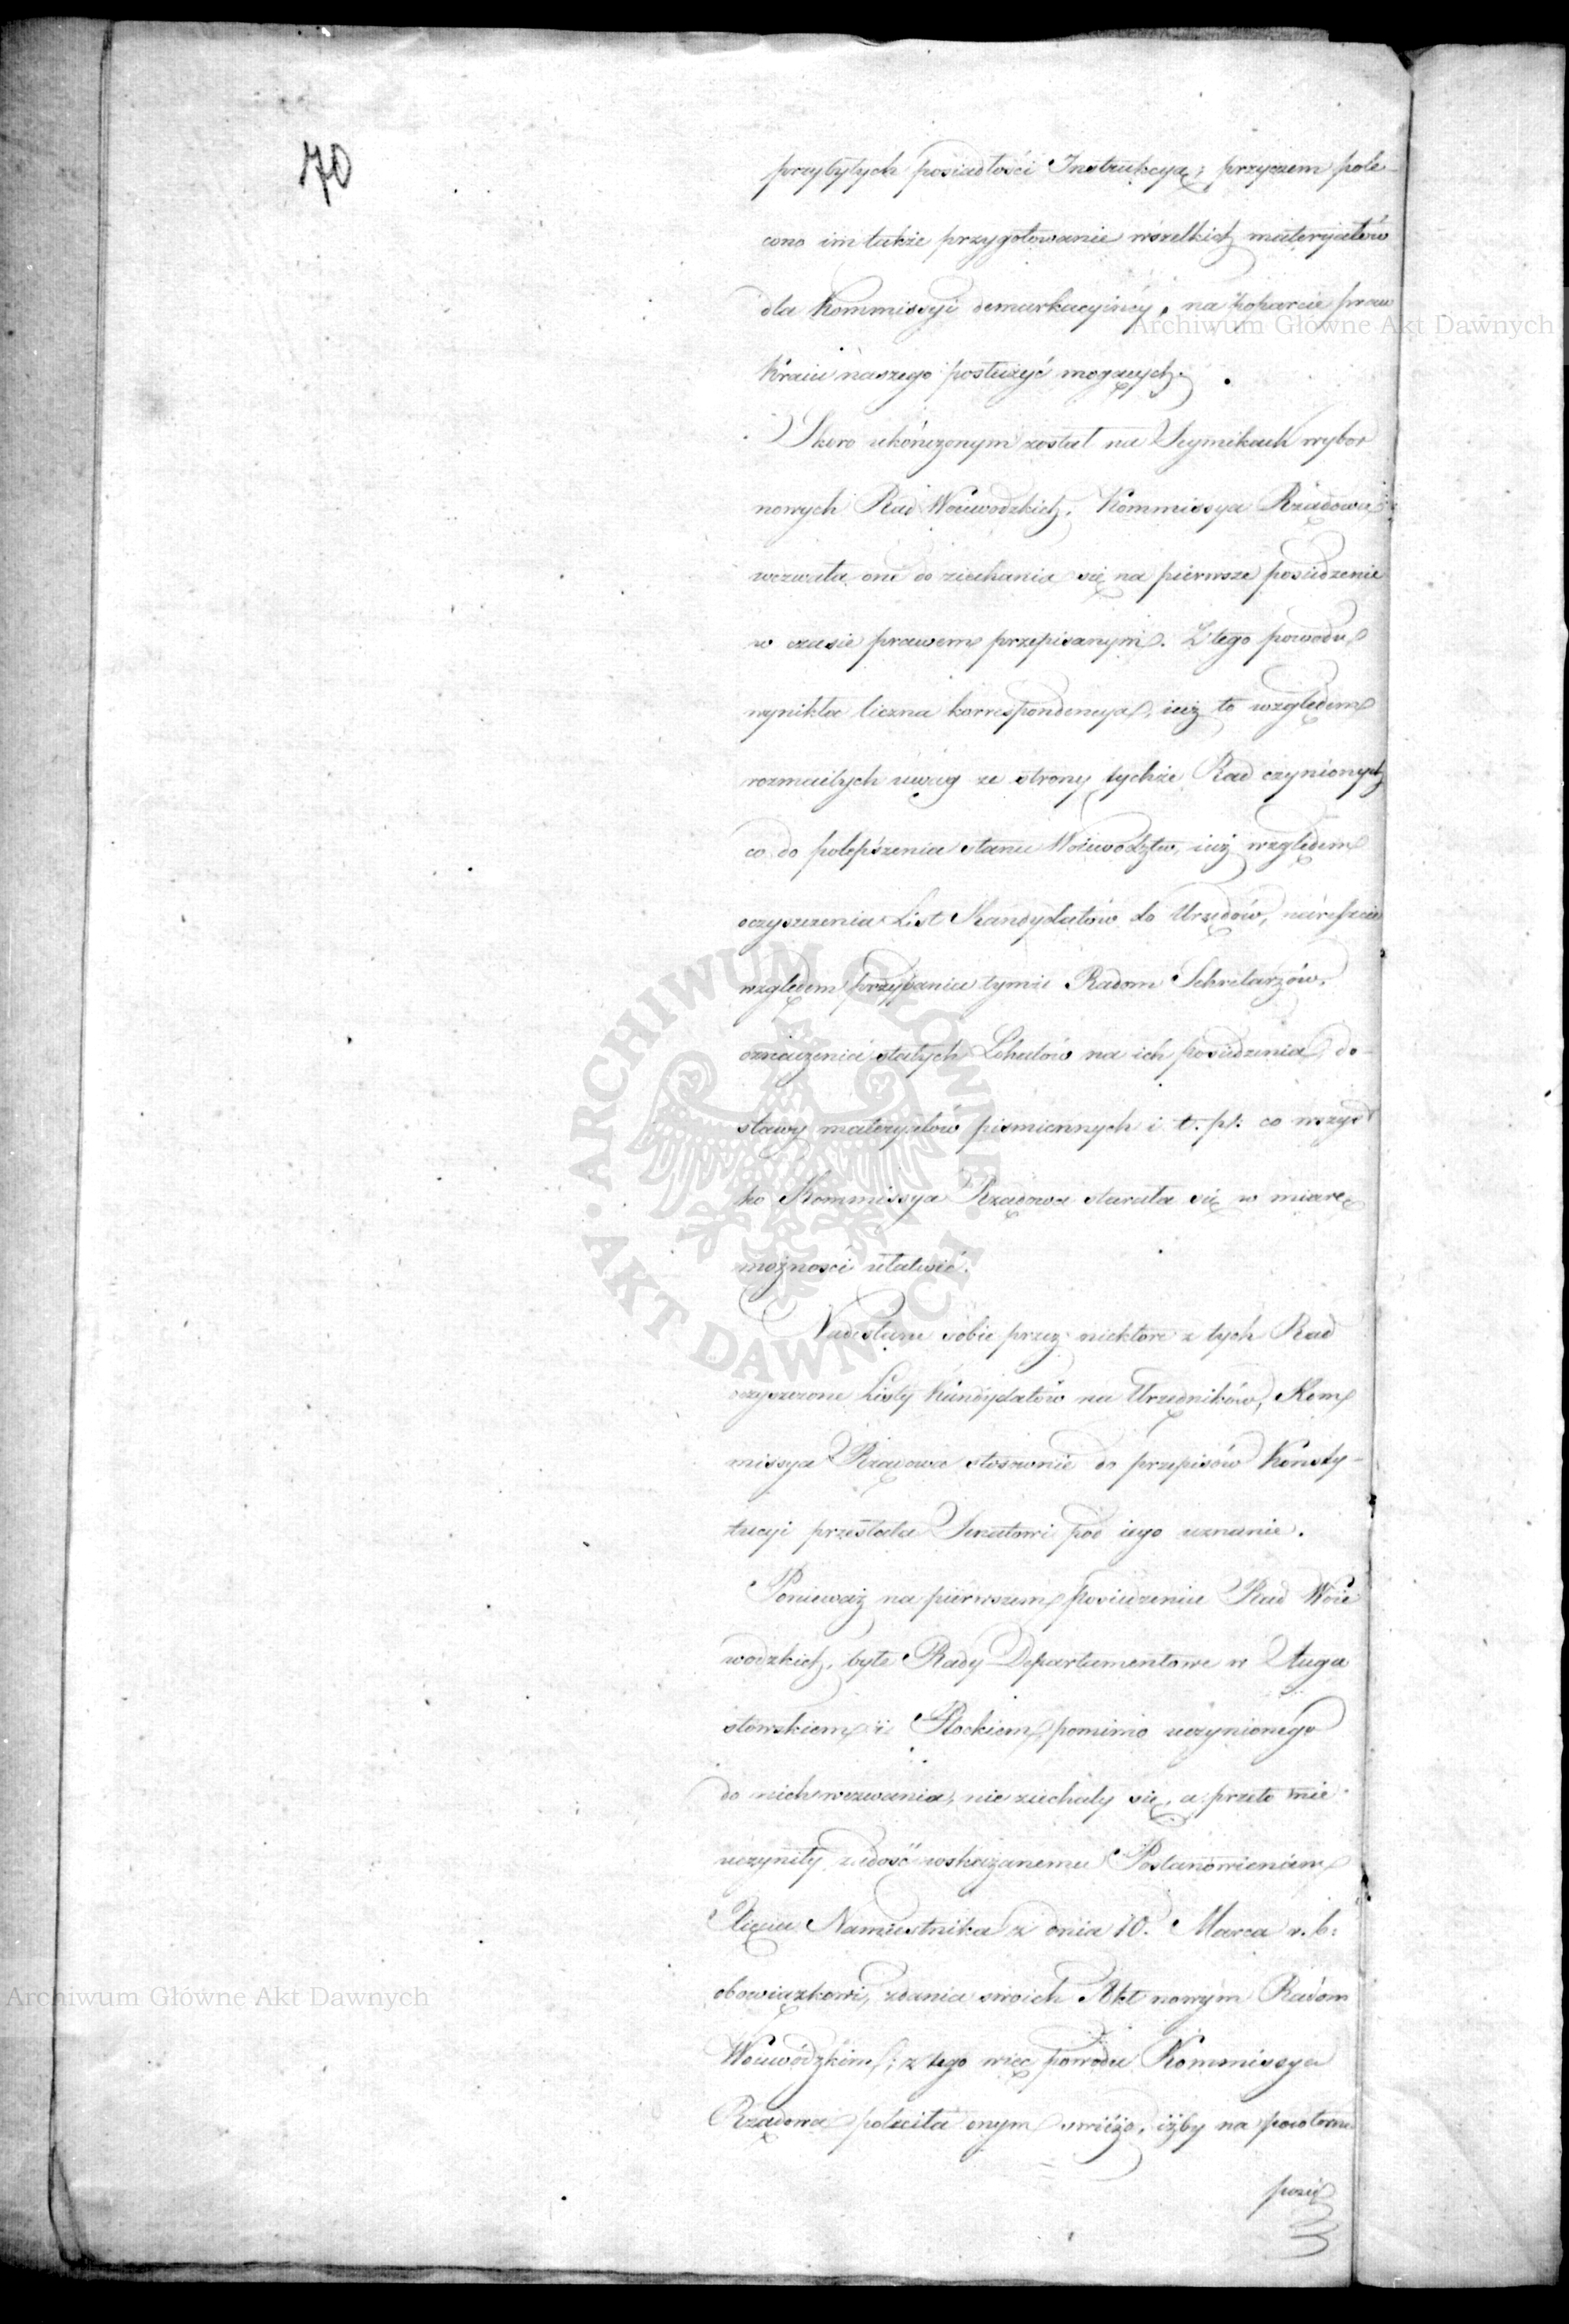 70
przybyłych posiadłości Instrukcyą; przyczem pole-
cono im także przygotowanie wszelkich materyałów
dla Kommissyi demarkacyinéy, na poparcie praw
Kraiu naszego posłużyć mogących.
Skoro ukończonym został na Seymikach wybor
nowych Rad Woiewodzkich, Kommissya Rządowa
wezwała one do ziechania się na pierwsze posiedzenie
w czasie prawem przepisanym. Z tego powodu
wynikła liczna korrespondencya, iuż to względem
rozmaitych uwag ze strony tychże Rad czynionych
co do polepszenia stanu Woiewództw, iuż względem
oczyszczenia List Kandydatów do Urzędów, nareszcie
względem przydania tymże Radom Sekretarzów,
oznaczenia stałych Lokalów na ich posiedzenia, do-
stawy materyałów piśmiennych i t. p. co wszyst
ko Kommissya Rządowa starała się w miarę
możności ułatwić.
Nadesłane sobie przez niektóre z tych Rad
oczyszczone Listy Kandydatów na Urzędników, Kom
missya Rządowa stosownie do przepisów Konsty-
tucyi przesłała Senatowi pod iego uznanie.
Ponieważ na pierwszem posiedzeniu Rad Woie
wodzkich, byłe Rady Departamentowe w Augu
stowskiem i Płockiem, pomimo uczynionego
do nich wezwania, nie ziechały się, a przeto nie
uczyniły zadość wskazanemu Postanowieniem
Xięcia Namiestnika z dnia 10. Marca r. b:
obowiązkowi, zdania swoich Akt nowym Radom
Woiewódzkim; z tego więc powodu Kommissya
Rządowa poleciła onym świéżo, iżby na powtorne
posie
Archiwum Główne Akt Dawnych
ARCHIWUM GŁÓWNE AKT DAWNYCH
Archiwum Główne Akt Dawnych